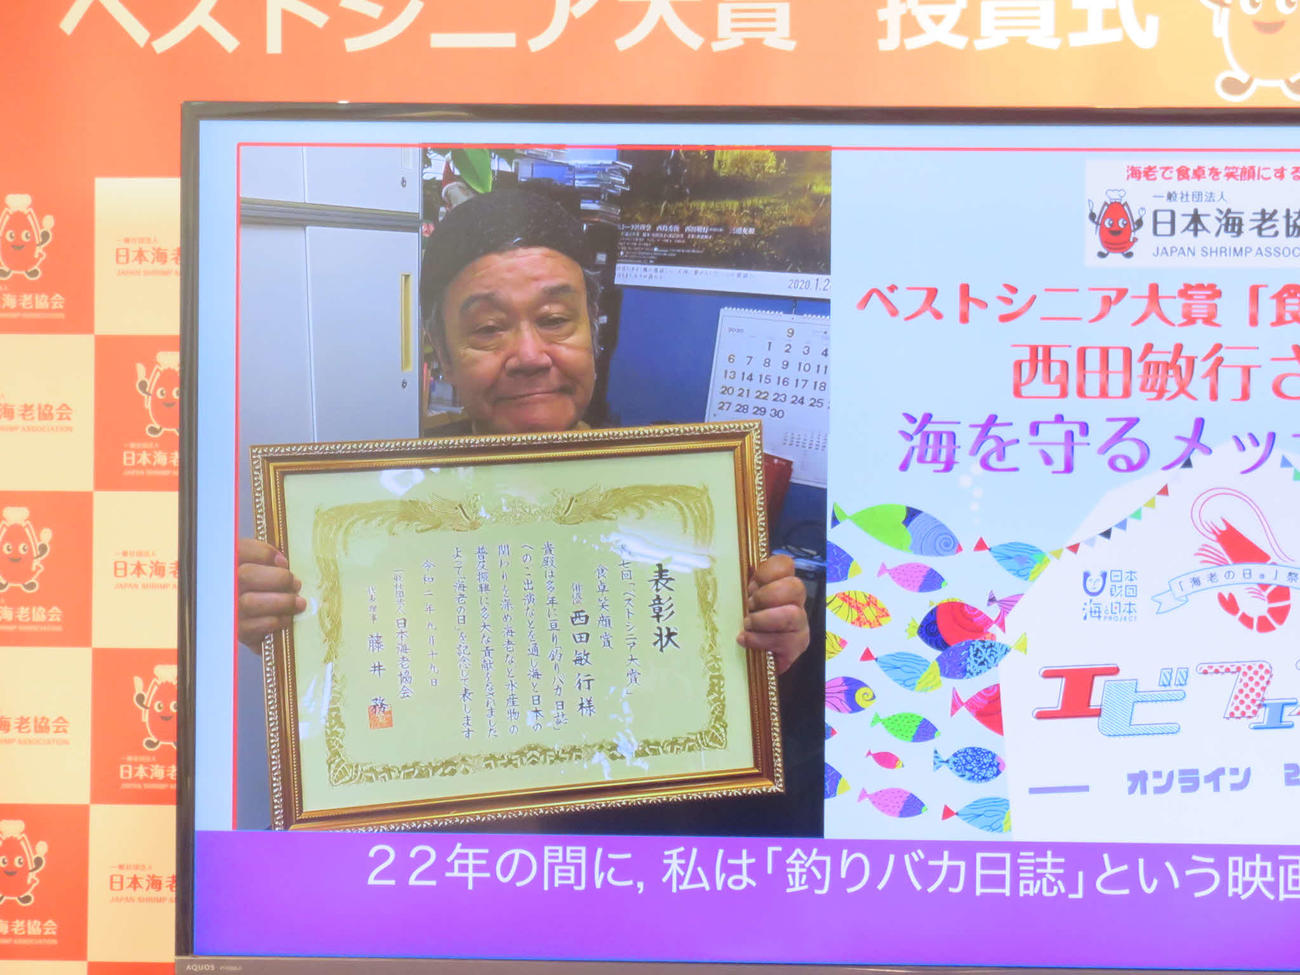 ベストシニア大賞 授賞式
海老で食卓を笑顔にする
一般社団法人
日本海老協
JAPAN SHRIMP ASSOC
ベストシニア大賞「食
西田敏行さ
海を守るメッ
2020.1.2
2020 9
1 2 3 4
6 7 8 9 10 11
13 14 15 16 17 18
20 21 22 23 24 25
27 28 29 30
表彰状
七回「ベストシニア大賞」
食卓の笑顔賞
俳優 西田敏行様
貴殿は多年に亘り釣りバカ日誌
へのご出演などを通し海と日本の
関わりを深め海老など水産物の
普及振興に多大な貢献をなされました
よって「海老の日」を記念して表します
令和二年九月十九日
一般社団法人日本海老協会
代表理事 藤井 務
日本
財団
海と日本
PROJECT
「海老の日®」祭
エビフェ
オンライン 2
22年の間に, 私は「釣りバカ日誌」という映画
AQUOS
海老協会
一般社団法人
日本海老
JAPAN SHRIMP A
海老協会
SHRIMP ASSOCIATION
日本海
海老協会
日本海
海老協会
日本海
一般社団法人
日本海老
JAPAN SHRIMP AS
海老協会